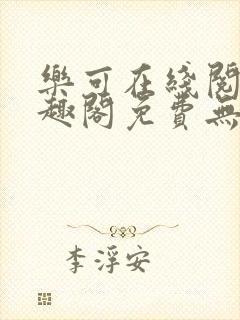 樂可在綫閱
趣閣免費無
李浮安